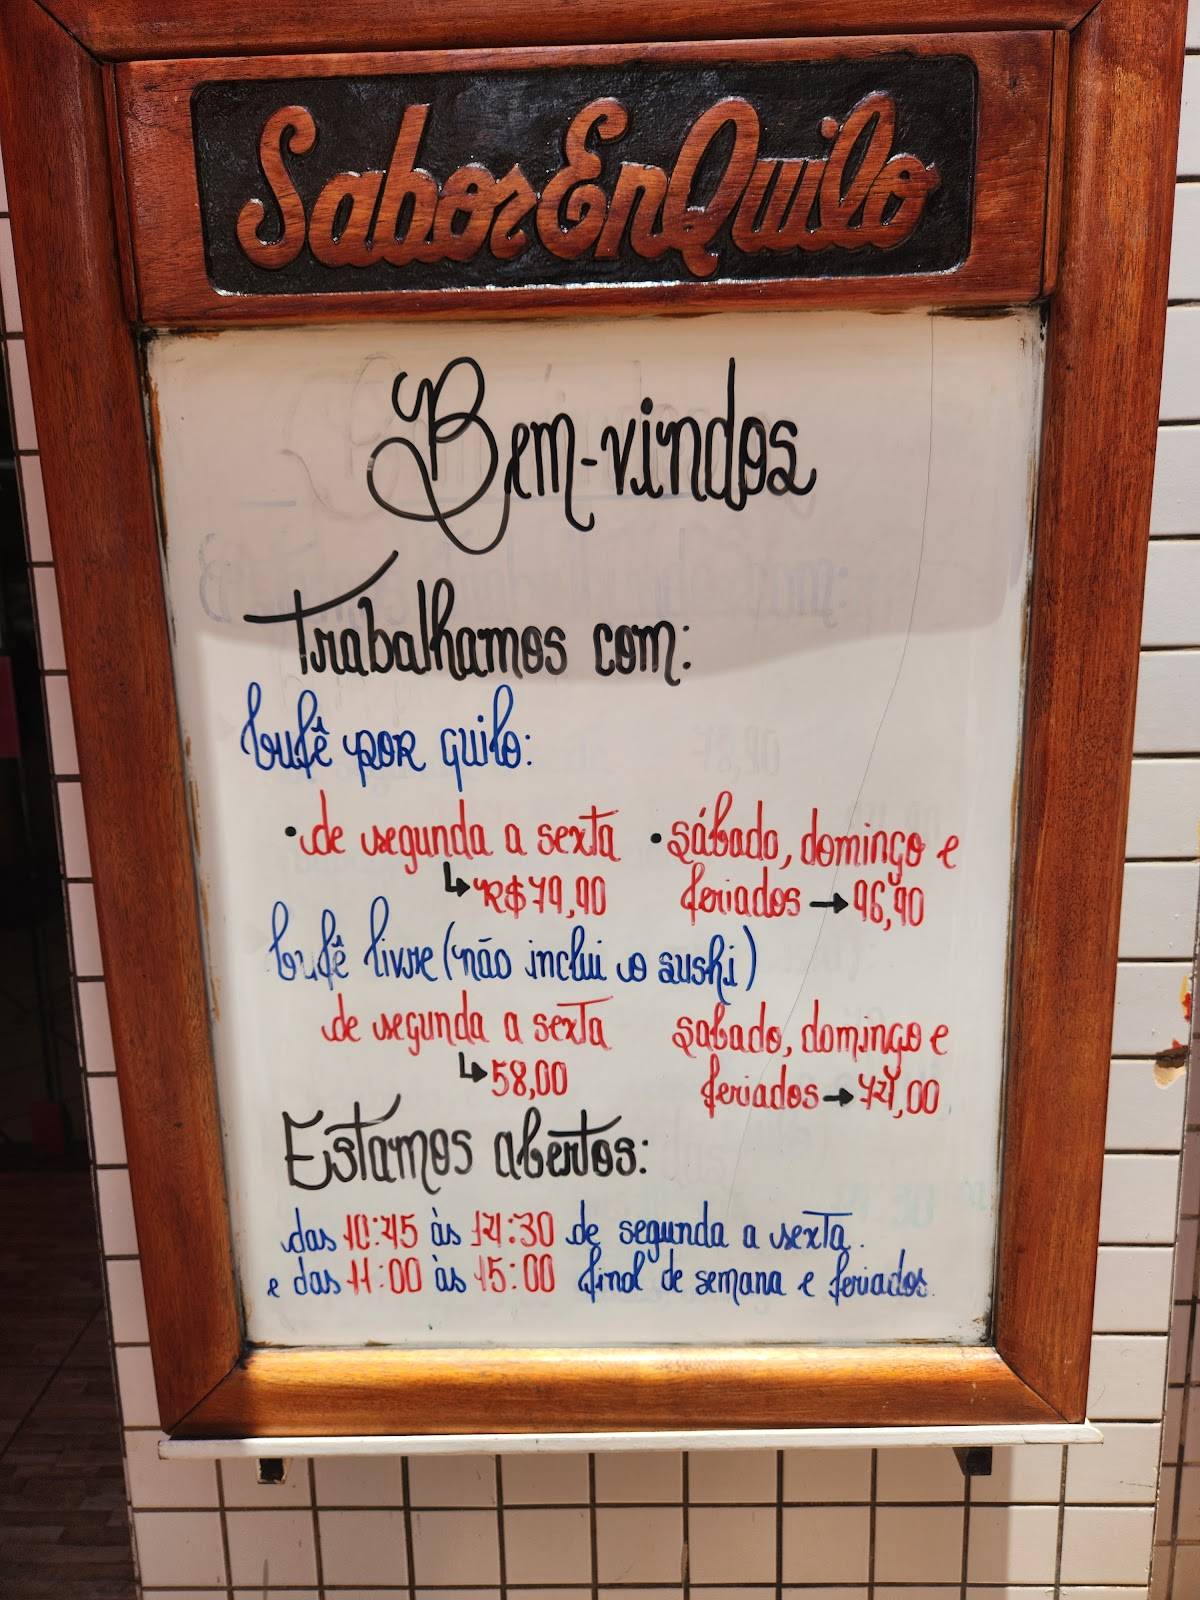 SaborEnQuilo
Bem-vindos
Trabalhamos com:
bufê por quilo:
• de segunda a sexta
↳ R$79,90
• sábado, domingo e
feriados → 96,90
bufê livre (não inclui o sushi)
de segunda a sexta
↳ 58,00
sabado, domingo e
feriados → 74,00
Estamos abertos:
das 10:45 às 14:30 de segunda a sexta.
e das 11:00 às 15:00 final de semana e feriados.